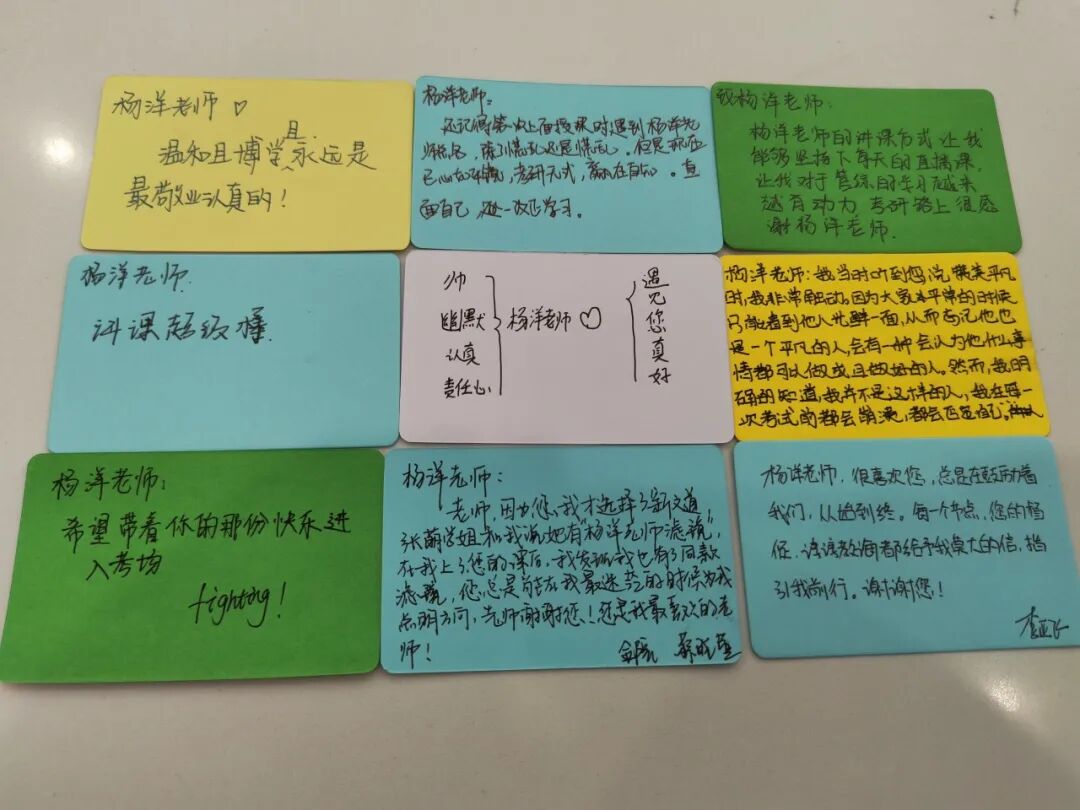 杨洋老师♡
温和且博学且永远是
最敬业认真的!
杨洋老师:
还记得第一次上面授课时遇到杨洋老
但是
已心如,考研方式,赢在自心。直
面自己,学习。
致杨洋老师:
杨洋老师的讲课方式让我
能够坚持下每天的直播课
让我对于管综的学习越来
越有动力 考研路上很感
谢杨洋老师.
杨洋老师.
讲课超级棒.
帅
幽默
认真
责任心
杨洋老师♡
遇
见
您
真
好
杨洋老师:我当时听到您说,赞美平凡
时,我非常触动。因为大家在平常的时候
只能看到他人光鲜一面,从而忘记他也
是一个平凡的人,会有一种会认为他什么事
情都可以做或且做好的人。然而,我明
确的知道,我并不是这样的人,我在每一
次考试的都会崩溃,都会否定自己。
杨洋老师:
希望带着你的那份快乐进
入考场
fighting!
杨洋老师:
老师,因为您,我才选择了新文道,
张萌学姐和我说她有"杨洋老师滤镜",
在我上了您的课后,我发现我也有了同款
滤镜,您总是能在我最迷茫的时候为我
点明方向,老师谢谢您!您是我最喜欢的老
师!
杨洋老师,很喜欢您,总是在鼓励着
我们,从始到终。每一个节点,您的
谆谆教诲都给予我莫大的信,指
引我前行。谢谢您!
李亚飞